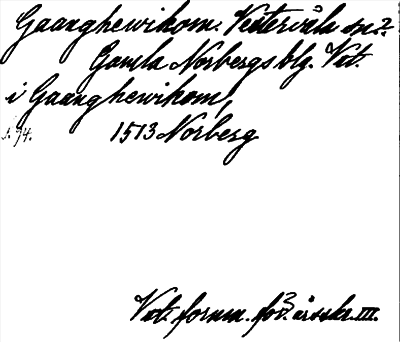 Gaanghewikom. Västervåla sn?
Gamla Norbergs blg. Vstm.
i Gaanghewikom,
s. 74. 1513 Norberg
Vstm. fornm. för. årsskr. III.